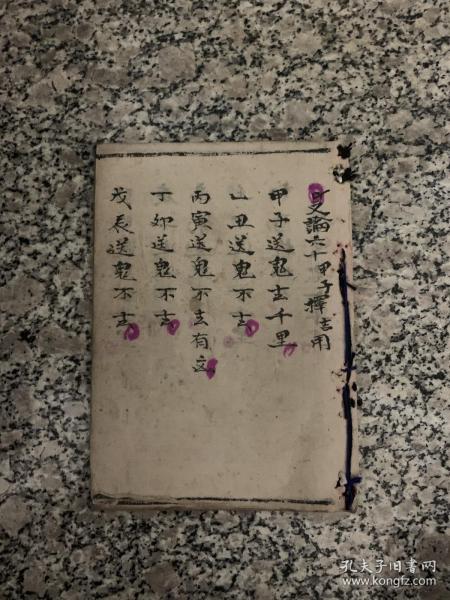 又論六十甲子擇吉用
甲子送鬼去千里
乙丑送鬼不去
丙寅送鬼不去有
丁卯送鬼不去
戊辰送鬼不去
孔夫子旧书网
www.kongfz.com